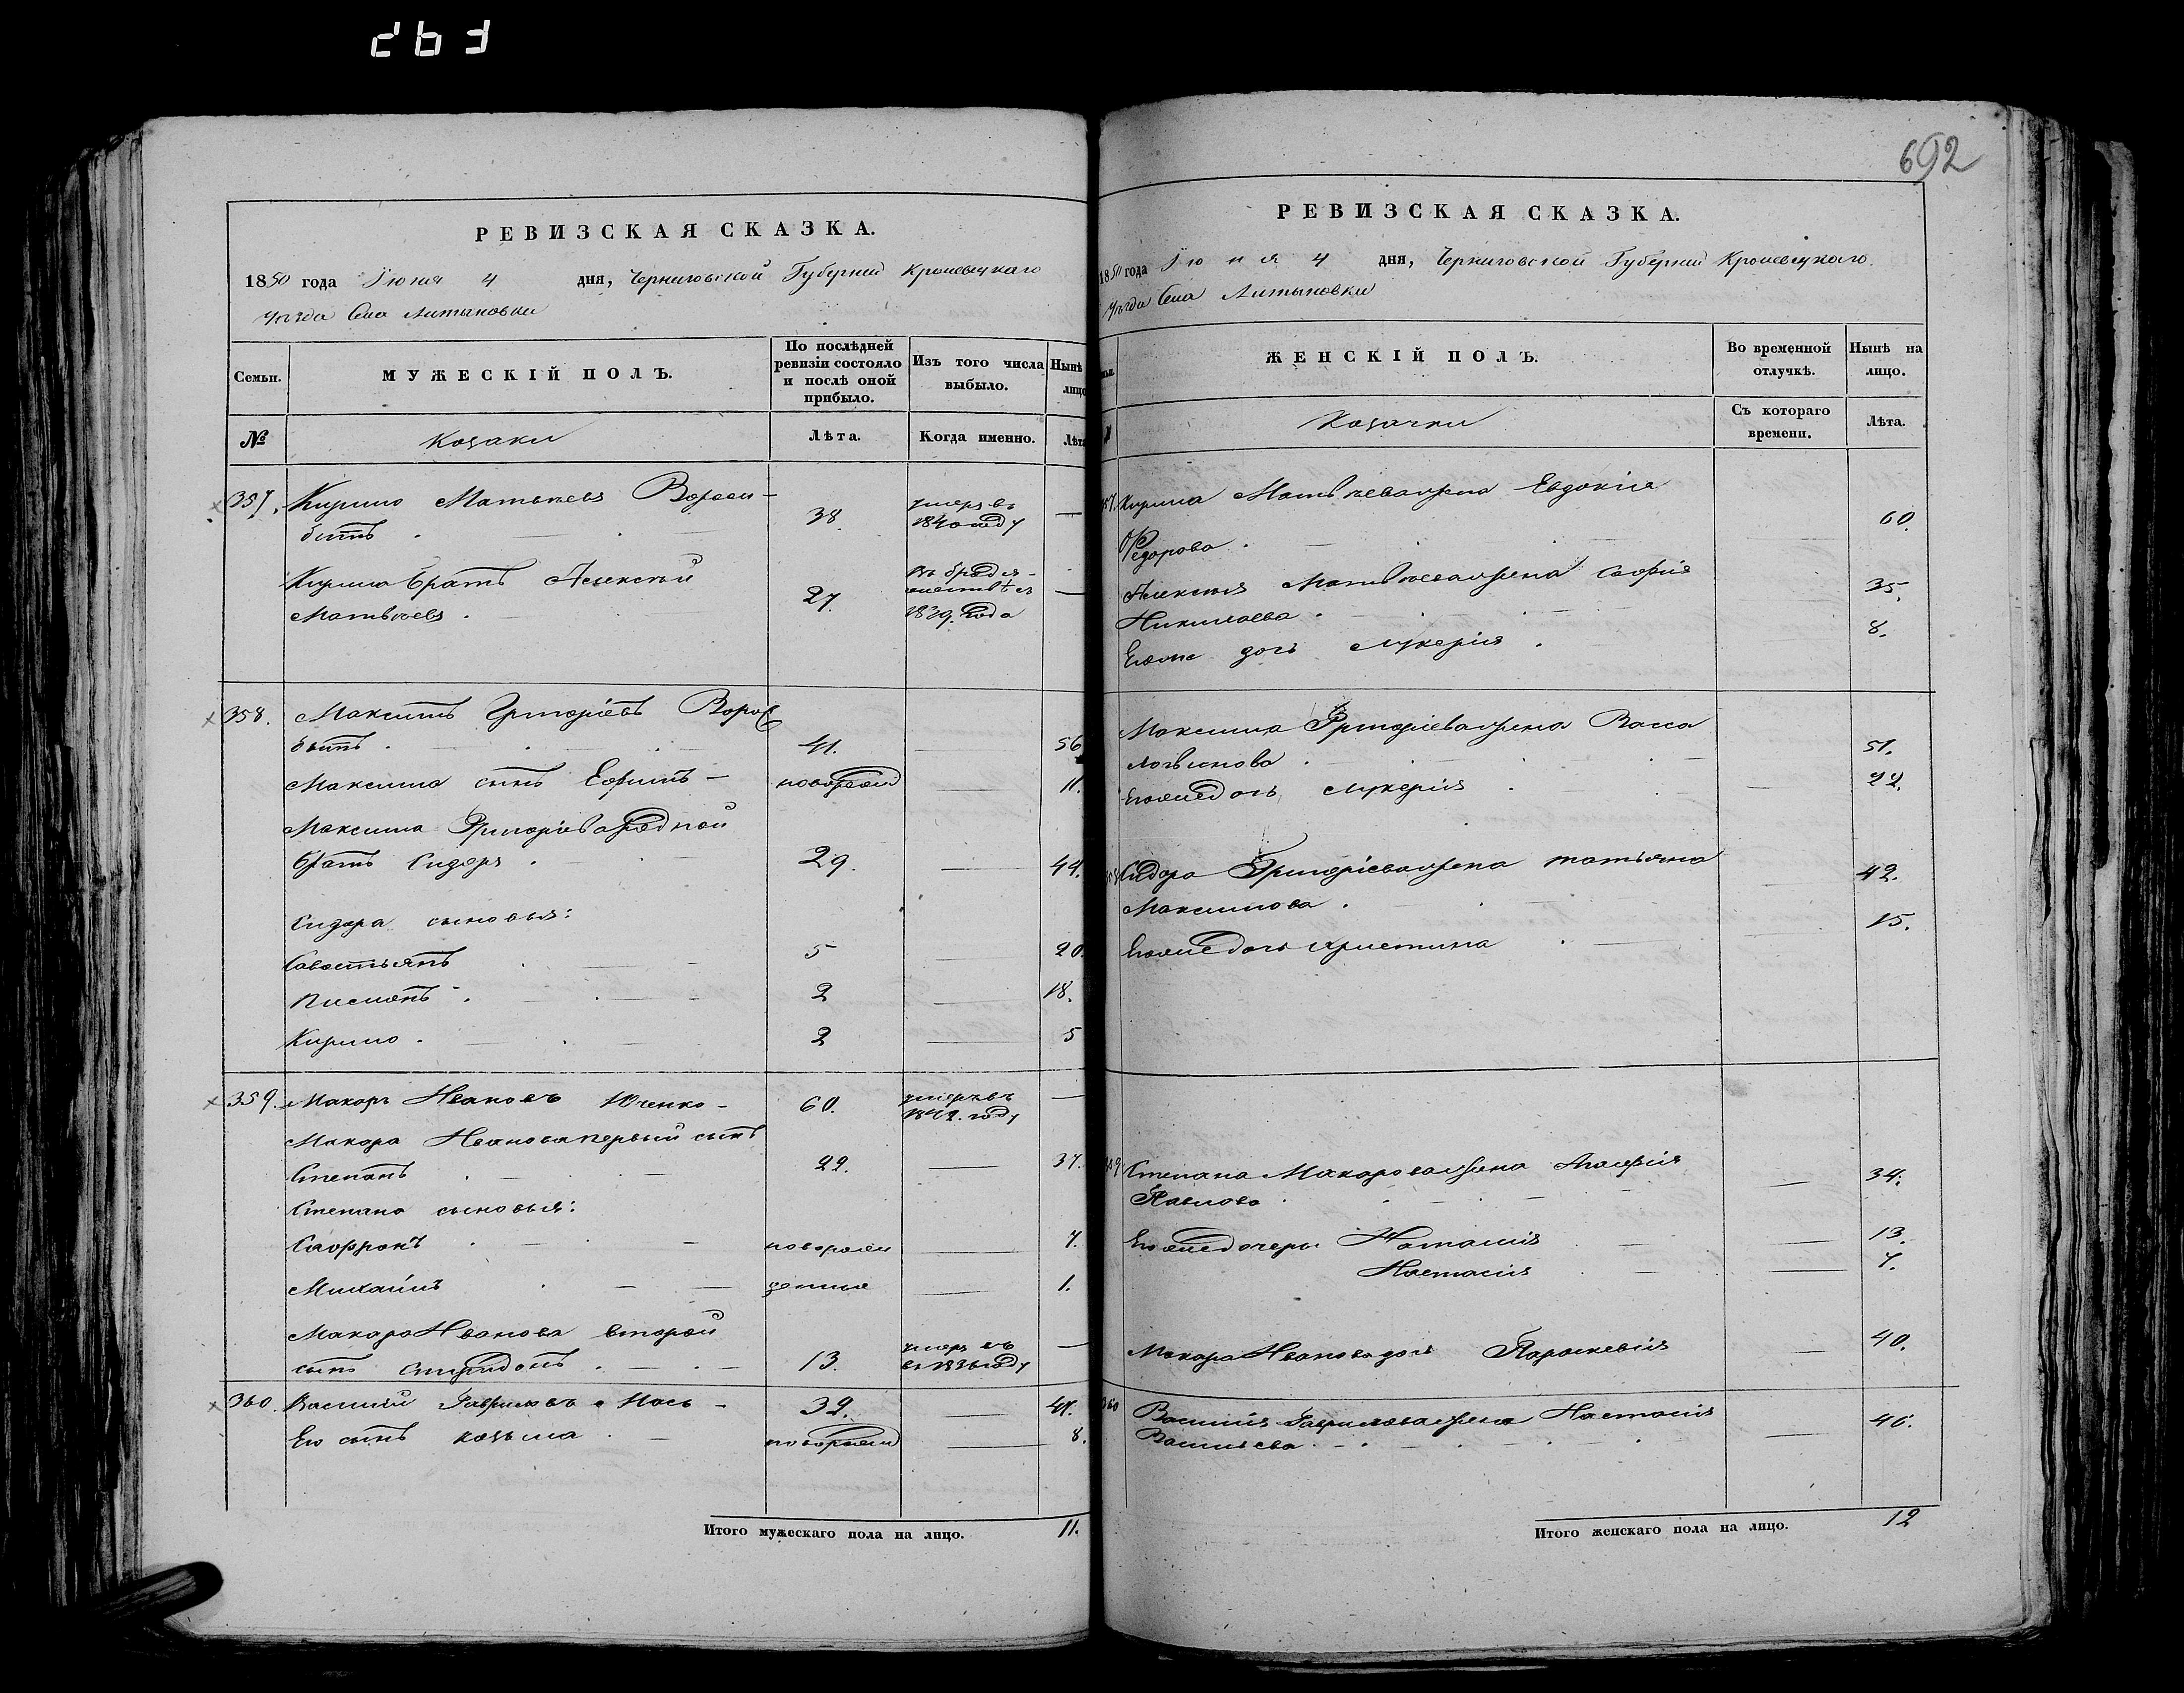 692
РЕВИЗСКАЯ СКАЗКА.
1850 года Іюня 4 дня, Черниговской Губерніи Кролевецкаго
уѣзда Села Литвиновки
Семьи.
МУЖЕСКІЙ ПОЛЪ.
По послѣдней ревизіи состояло и послѣ оной прибыло.
Изъ того числа выбыло.
Нынѣ
лицо
№
Козаки
Лѣта.
Когда именно.
Лѣта
357. Кирило Матвѣевъ
38. умеръ въ 1840 году —
Кирила братъ Алексѣй
Матвѣевъ. 27. въ 1839. года —
358. Максимъ Григоріевъ
41. 56
Максима сынъ Ефимъ — новорожд 11.
Максима Григоріева родной
братъ Сидоръ. 29. 44.
Сидора сыновья:
Савостьянъ 5 20.
2 18.
Кирило. 2 5
359. Макаръ Ивановъ Юченко — 60. умеръ въ 1842. году —
Макара Иванова первый сынъ
Степанъ 22. 37.
Степана сыновья:
Сафронъ новорож 7.
Михаилъ денные 1.
Макара Иванова второй
сынъ Спиридонъ. 13. умеръ въ 1836 году —
360. Василій Гавриловъ Мось — 32. 47.
Его сынъ Козьма. новорожд 8.
Итого мужескаго пола на лицо. 11.
РЕВИЗСКАЯ СКАЗКА.
1850 года Іюня 4 дня, Черниговской Губерніи Кролевецкаго
уѣзда Села Литвиновки
ЖЕНСКІЙ ПОЛЪ.
Во временной отлучкѣ.
Нынѣ на лицо.
Козачки
Съ котораго времени.
Лѣта.
357. Кирила Матвѣева жена Евдокія
Федорова. 60.
Алексѣя Матвѣева жена Софія
Николаева. 35.
Его же дочь Лукерія. 8.
Максима Григоріева жена Васса
Логвинова 51.
Его же дочь Лукерія 22.
Сидора Григоріева жена Татьяна
Максимова. 42.
Его же дочь Христина 15.
Степана Макарова жена
Павлова. 34.
Его же дочери Наталія 13.
Настасія 7.
Макара Иванова дочь Параскевія 40.
360 Василія Гаврилова жена Настасія
Васильева. 46.
Итого женскаго пола на лицо. 12